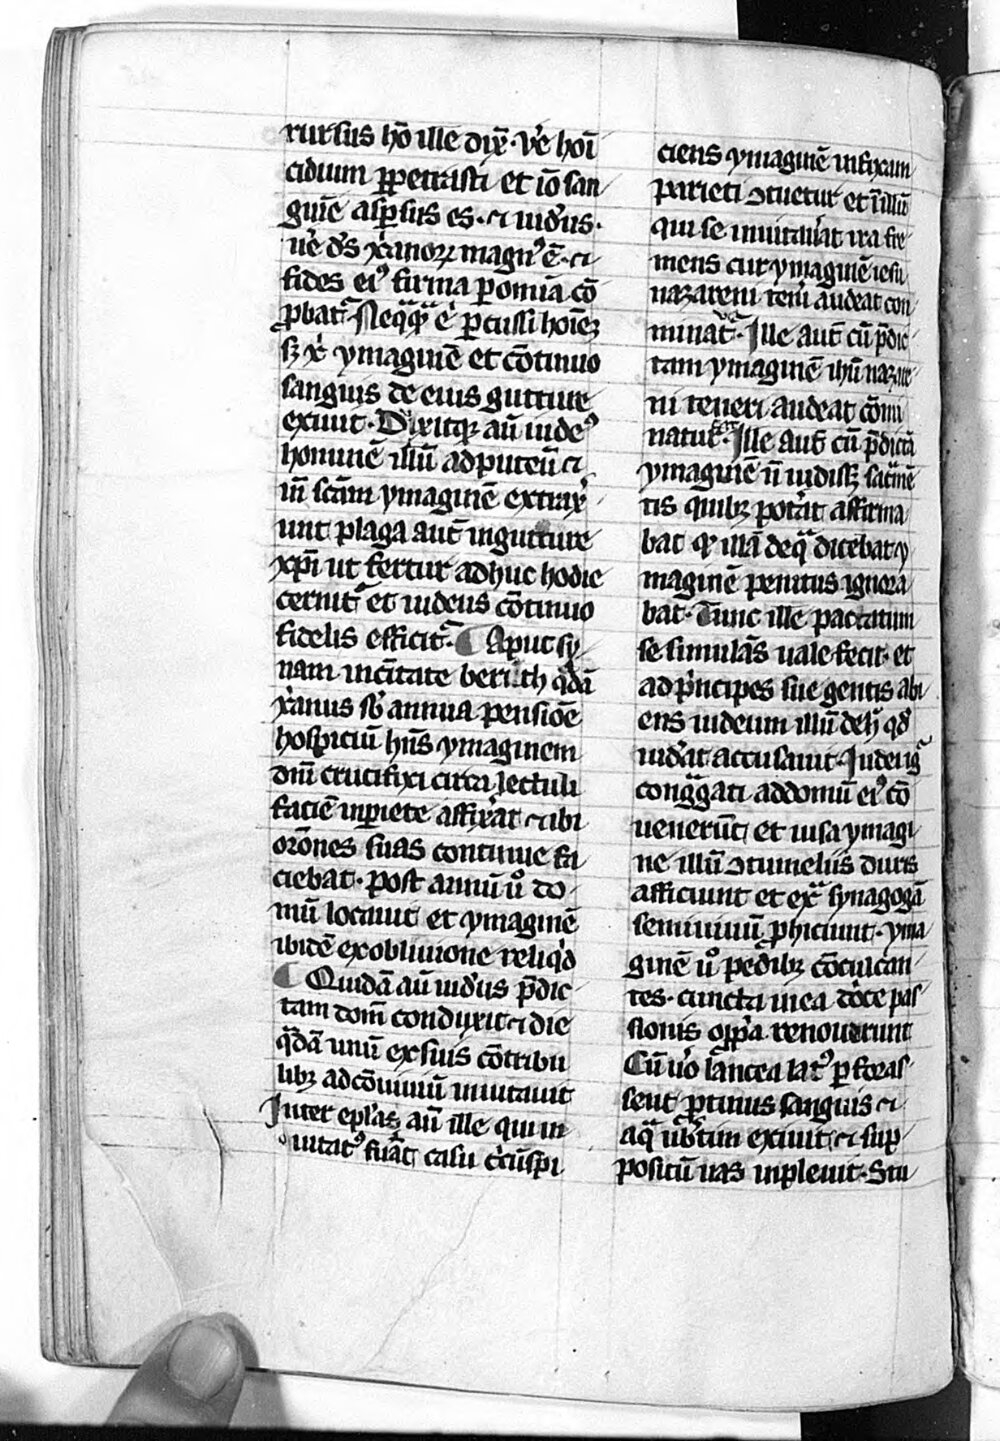 rursus hō ille dix̄· ve᷑ homī
cidium ꝑpetrasti et iō san
guīe asꝑsus es· ⁊ iudꝰus·
ue᷑ dꝰs xᵃnoꝝ magnꝰ ē· ⁊
fides eiꝰ firma ꝑ omīa cō
ꝓbatᷓ· Neqͣqͣꝫ eī ꝑcussi hoīeꝫ
sꝫ xꝰ ymaginē et cōtinuo
sanguis de eius gutture
exiuit· Dixitqꝫ aū iudeꝰ
hominē illū ad puteū ⁊
in̄ scām ymaginē extrax᷑
unt plaga aut̄ in gutture
xp̄i ut fertur ad huc hodie
cernitᷓ et iudeus cōtinuo
fidelis efficitᷓ· ¶ Aput sy
riam in cītate berith qͥdā
xᵃnus sᵇ annua pensiōe
hospiciū hn̄s ymaginem
dnī crucifixi circa lectuli
faciē in piete affix᷑at ⁊ ibi
orōnes suas continue fa
ciebat· post annū uº do
mū locauit et ymaginē
ibidē ex obliuione reliqͥd
¶ Quidā aū iudꝰus p̄dic
tam dom̄ conduxit ⁊ die
qͣdā unū ex suis cōtribu
libꝫ ad cōuiuiū inuitauit
Inter epl᷑as aū ille qui in
uitatꝰ fuāt casu cͥcūspi
ciens ymaginē infixam
parieti ɔtuetur et ī illū
qui se inuitau᷑at ira fre
mens cur ymaginē iesu
nazareni teni᷑ audeat con
minatᷓ· Ille aut̄ cū p̄dic
tam ymaginē ihū nazare
ni teneri audeat cōmi
natur· Ille aut̄ cū p̄dictā
ymaginē n̄ uidisꝫ sacͣmē
tis qͥmibꝫ pot᷑at affirma
bat qͩ illā de qͣ dicebat y
maginē penitus ignora
bat· Tunc ille paccatum
se simulās uale fecit· et
ad pͥncipes sue gentis abi
ens iudeum illū de h̄ qͩ
uid᷑at accusauit· Iudei igͣ
congͣgati ad domū eiꝰ cō
uenerūt et uisa ymagi
ne illū ɔtumeliis duris
afficiunt et exͣ synagogā
semiuiuū ꝓhiciunt· yma
ginē uº pedibꝫ cōculcan
tes· cuncta in ea dōce pas
sionis oppᵃ renouerunt
Cū uº lancea latꝰ ꝑforas
sent ꝓtinus sanguis ⁊
aqͣ ub᷑tim exiuit ⁊ sup
positū uas inpleuit· Stu